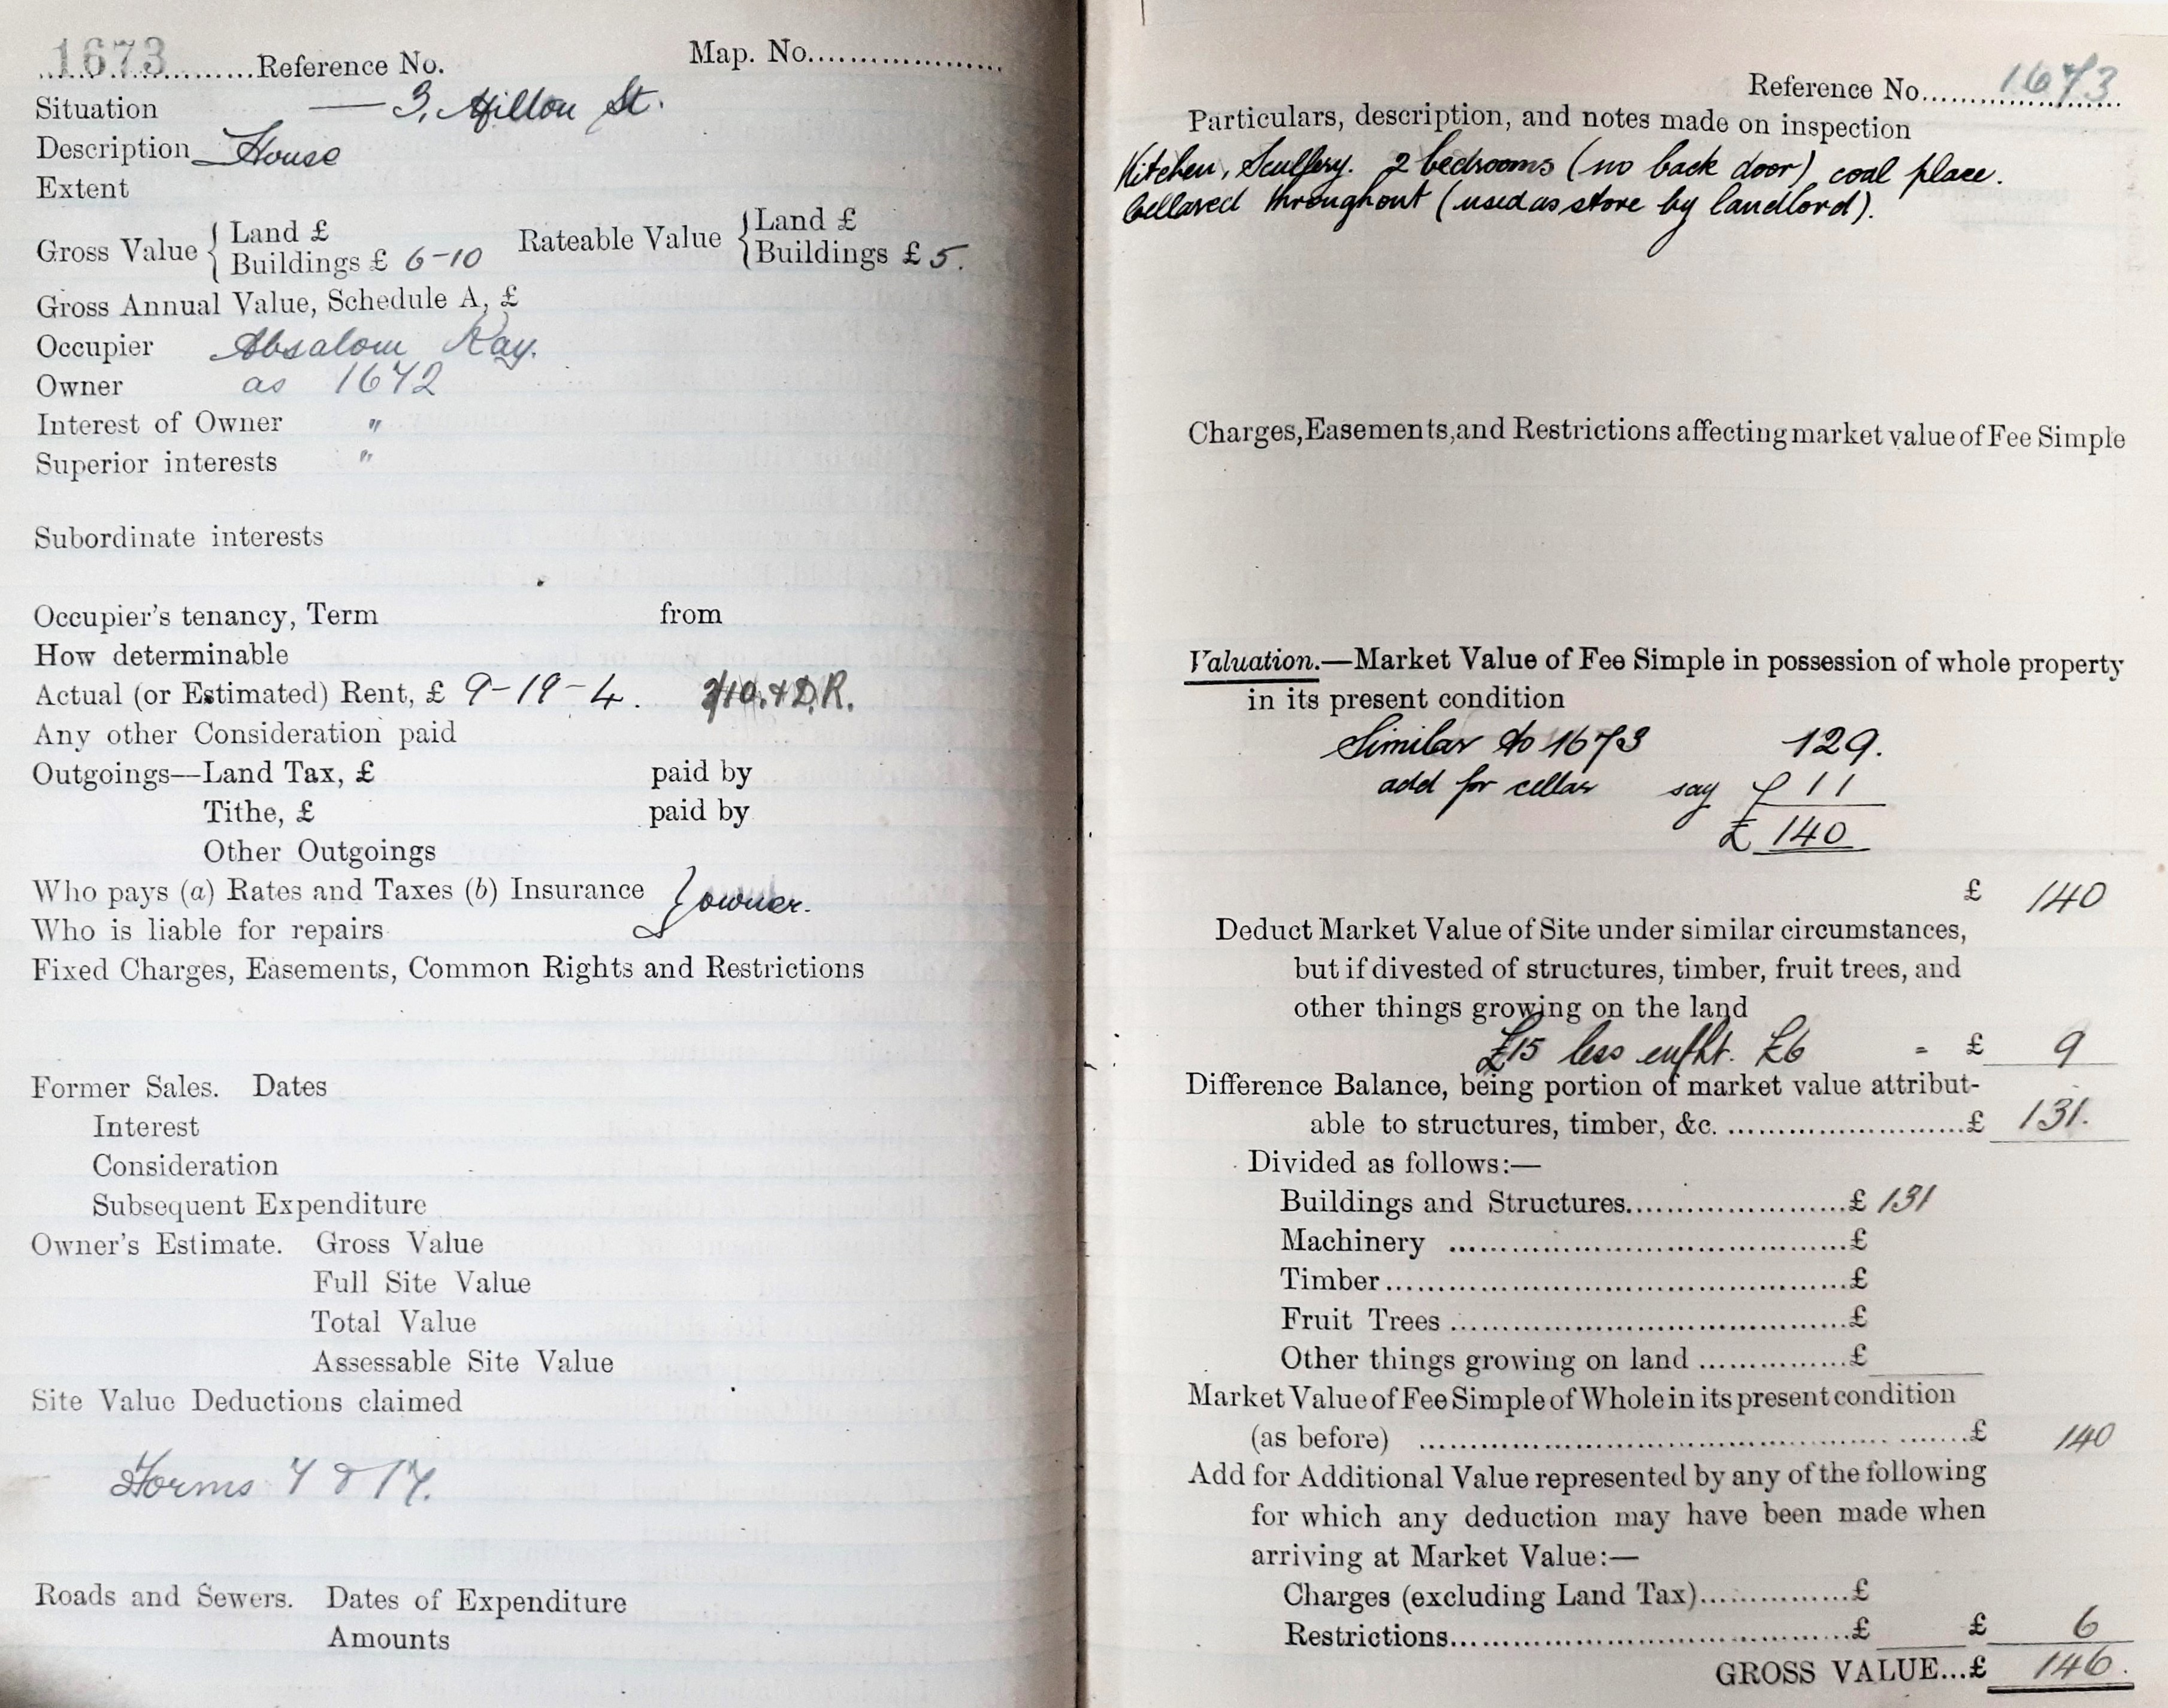 1673 Reference No. Map. No.
Situation — 3, Hillon St.
Description House
Extent
Gross Value { Land £
Buildings £ 6-10
Rateable Value { Land £
Buildings £ 5.
Gross Annual Value, Schedule A, £
Occupier Absalom Kay.
Owner as 1672
Interest of Owner "
Superior interests "
Subordinate interests
Occupier's tenancy, Term from
How determinable
Actual (or Estimated) Rent, £ 9-19-4. 3/10. & D.R.
Any other Consideration paid
Outgoings—Land Tax, £ paid by
Tithe, £ paid by
Other Outgoings
Who pays (a) Rates and Taxes (b) Insurance } owner.
Who is liable for repairs
Fixed Charges, Easements, Common Rights and Restrictions
Former Sales. Dates
Interest
Consideration
Subsequent Expenditure
Owner's Estimate. Gross Value
Full Site Value
Total Value
Assessable Site Value
Site Value Deductions claimed
Forms 7 & 17.
Roads and Sewers. Dates of Expenditure
Amounts
Reference No. 1673
Particulars, description, and notes made on inspection
Kitchen, Scullery. 2 bedrooms (no back door) coal place.
Cellared throughout (used as store by landlord).
Charges, Easements, and Restrictions affecting market value of Fee Simple
Valuation.—Market Value of Fee Simple in possession of whole property
in its present condition
Similar to 1673 129.
add for cellar say £ 11
£ 140
£ 140
Deduct Market Value of Site under similar circumstances,
but if divested of structures, timber, fruit trees, and
other things growing on the land
£15 less enfht. £6 = £ 9
Difference Balance, being portion of market value attribut-
able to structures, timber, &c. £ 131.
Divided as follows:—
Buildings and Structures £ 131
Machinery £
Timber £
Fruit Trees £
Other things growing on land £
Market Value of Fee Simple of Whole in its present condition
(as before) £ 140
Add for Additional Value represented by any of the following
for which any deduction may have been made when
arriving at Market Value:—
Charges (excluding Land Tax) £
Restrictions £ £ 6
GROSS VALUE...£ 146.